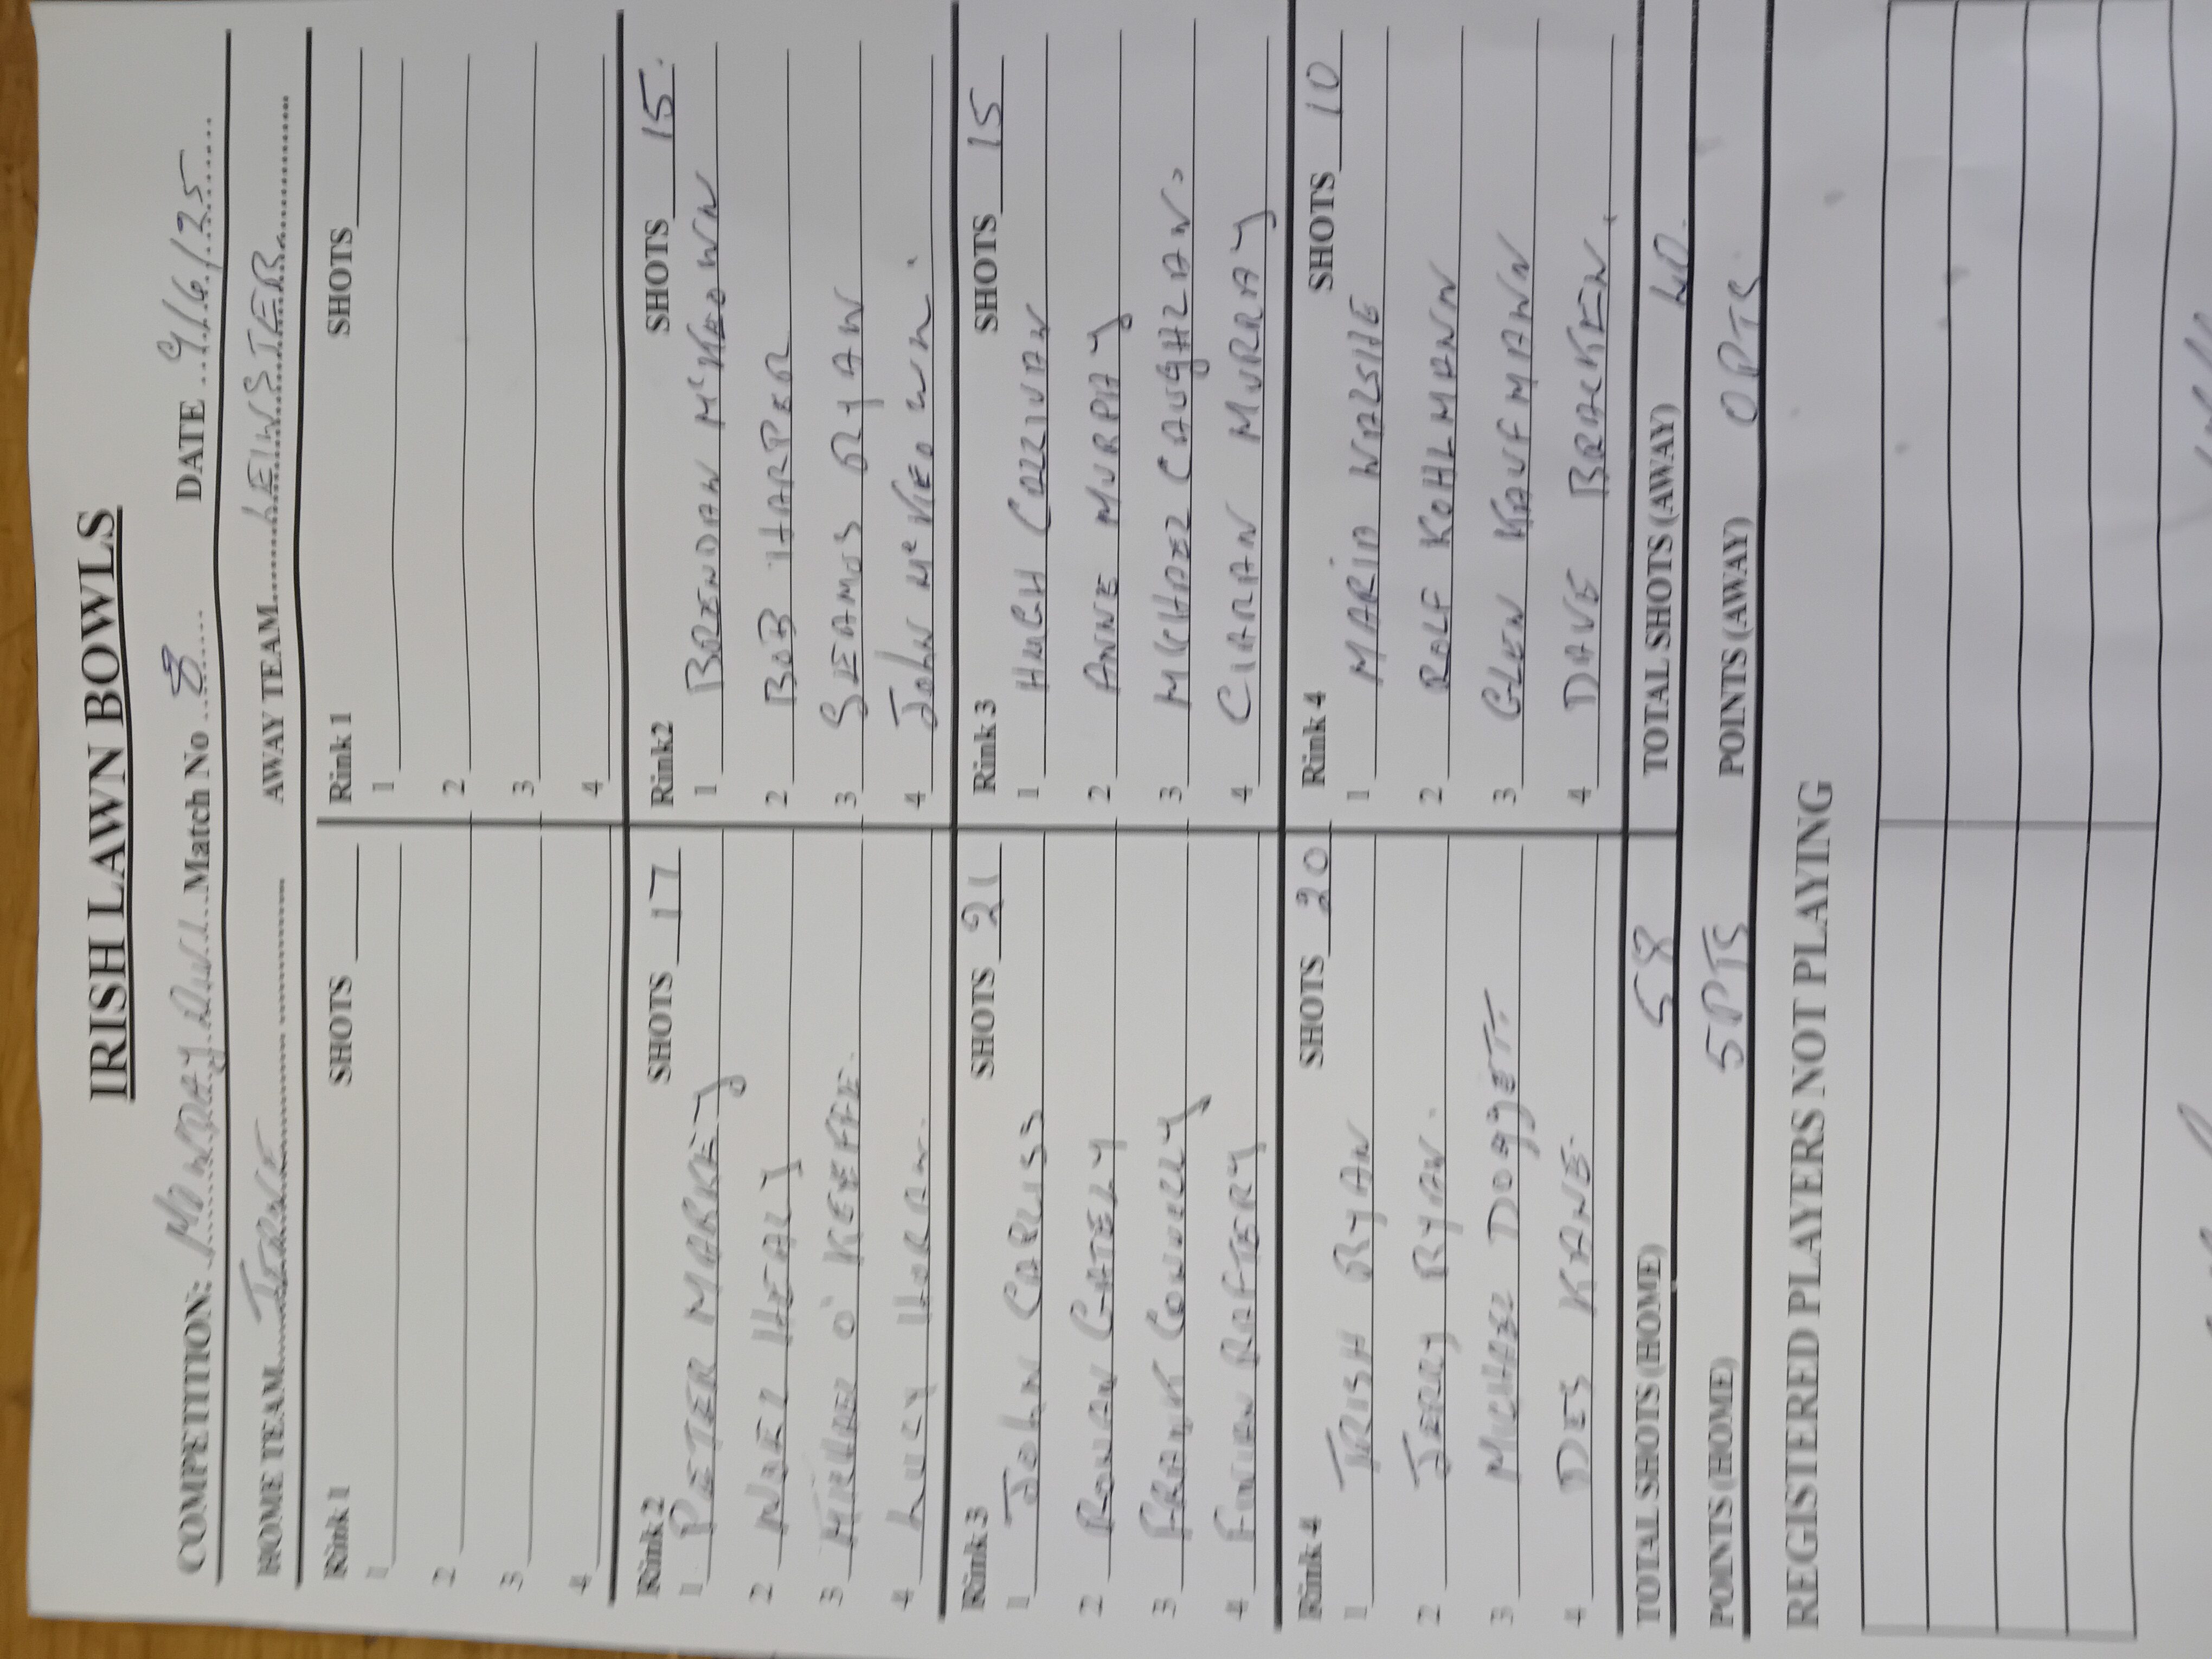 IRISH LAWN BOWLS
COMPETITION: MONDAY DIV 1 Match No 8 DATE 9/6/25
HOME TEAM IERNE AWAY TEAM LEINSTER
Rink 1 SHOTS Rink 1 SHOTS
1 1
2 2
3 3
4 4
Rink 2 SHOTS 17 Rink2 SHOTS 15.
1 PETER MARKEY 1 BRENDAN McKEOWN
2 NOEL HEALY 2 BOB HARPER
3 O'KEEFFE. 3 SEAMUS RYAN
4 LUCY HORAN. 4 JOHN
Rink 3 SHOTS 21 Rink 3 SHOTS 15
1 JOHN CORLISS 1 HUGH COLLIVAN
2 RONAN GATELY 2 ANNE MURPHY
3 FRANK CONNOLLY 3 MICHAEL CAUGHLAN.
4 FINIAN RAFTERY 4 CIARAN MURRAY
Rink 4 SHOTS 20 Rink 4 SHOTS 10
1 TRISH RYAN 1 MARIA WALSHE
2 JERRY RYAN. 2 ROLF KOHLMANN
3 MICHAEL DOGGETT. 3 GLEN KAUFMANN
4 DES KANE. 4 DAVE BRACKEN.
TOTAL SHOTS (HOME) 58 TOTAL SHOTS (AWAY) 40.
POINTS (HOME) 5PTS POINTS (AWAY) 0PTS.
REGISTERED PLAYERS NOT PLAYING